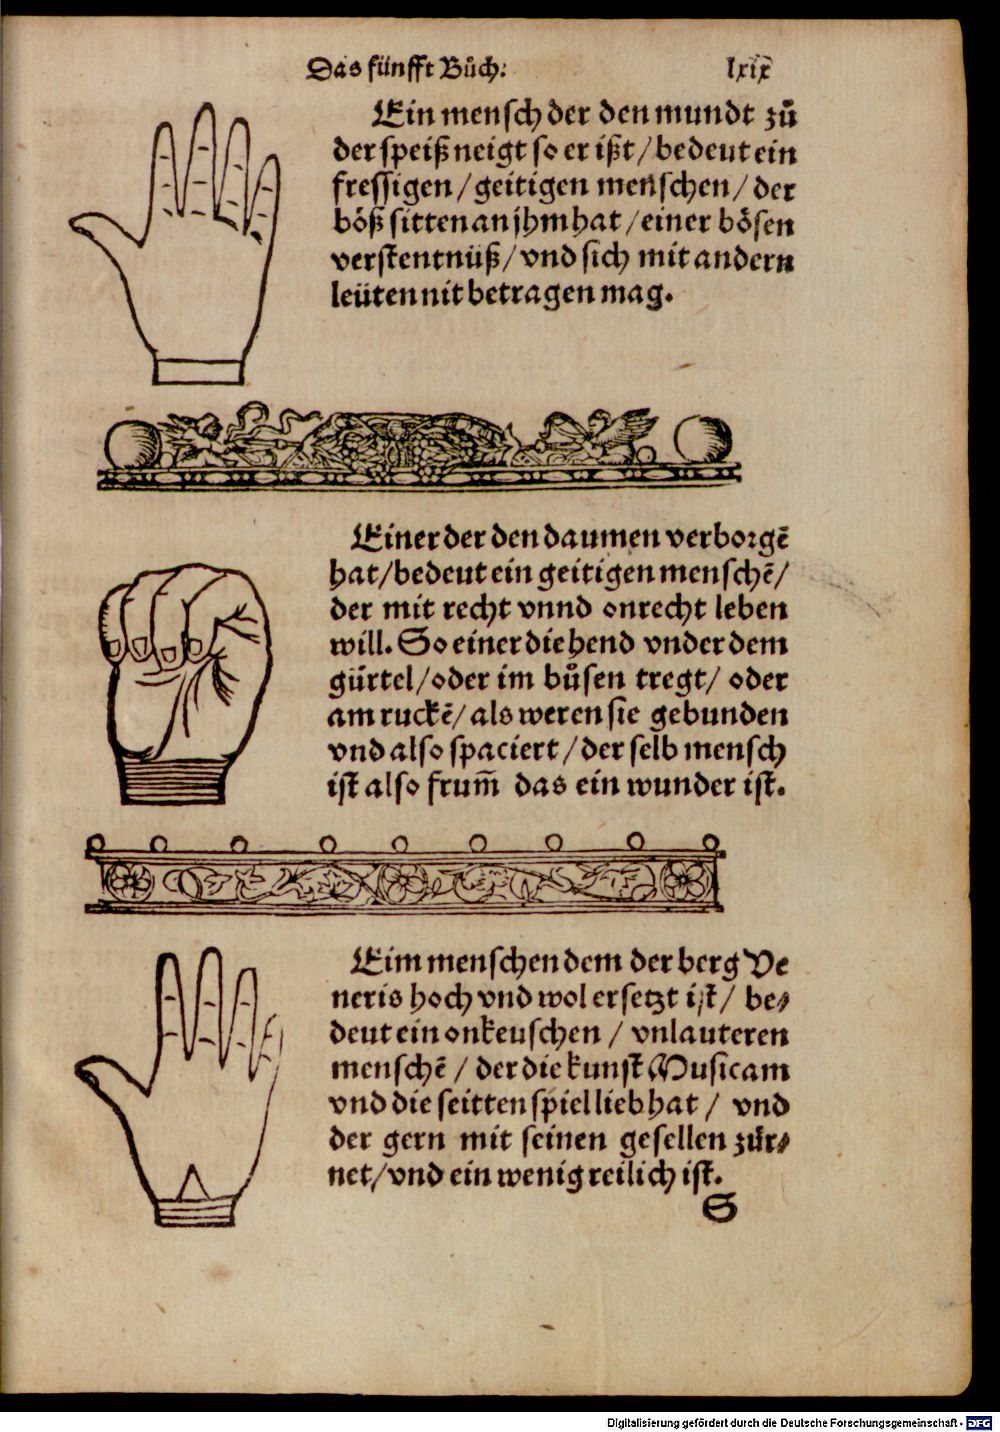 Das fünfft Bůch: lxix
Ein mensch der den mundt zů
der speiß neigt so er ißt / bedeut ein
fressigen / geitigen menschen / der
böß sitten an jhm hat / einer bösen
verstentnüß / vnd sich mit andern
leüten nit betragen mag.
Einer der den daumen verborgẽ
hat / bedeut ein geitigen menschẽ /
der mit recht vnnd onrecht leben
will. So einer die hend vnder dem
gürtel / oder im bůsen tregt / oder
am ruckẽ / als weren sie gebunden
vnd also spaciert / der selb mensch
ist also frum̃ das ein wunder ist.
Eim menschen dem der berg Ve
neris hoch vnd wol ersetzt ist / be⸗
deut ein onkeuschen / vnlauteren
menschẽ / der die kunst Musicam
vnd die seitten spiel lieb hat / vnd
der gern mit seinen gesellen zür⸗
net / vnd ein wenig reilich ist.
S
Digitalisierung gefördert durch die Deutsche Forschungsgemeinschaft - DFG